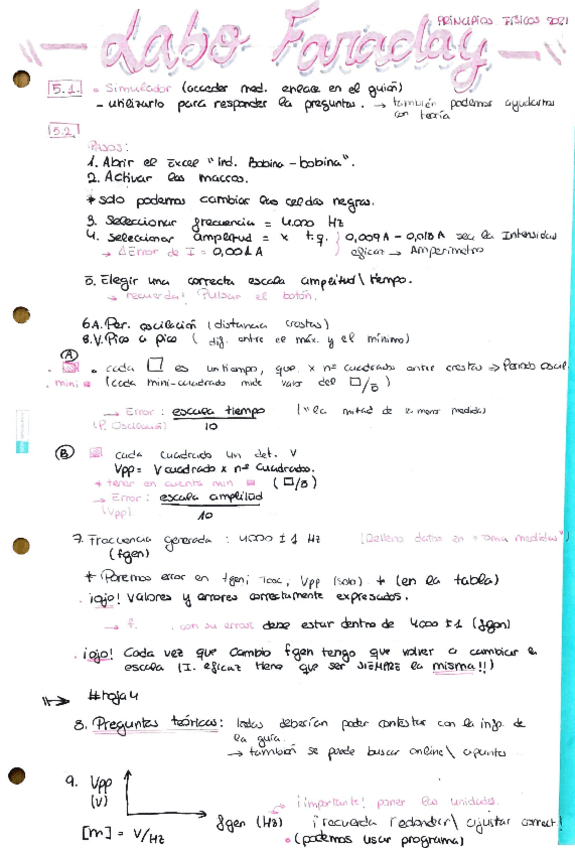 PRINCIPIOS FÍSICOS 2021
Labo Faraday
5.1. • Simulador (acceder med. enlace en el guión)
- utilizarlo para responder la preguntas. → también podemos ayudarnos
con teoría
5.2.
PASOS:
1. Abrir el Excel "Ind. Bobina-bobina".
2. Activar las macros.
* solo podemos cambiar las celdas negras.
3. Seleccionar frecuencia = 4.000 Hz
4. Seleccionar amplitud = x t.q. 0,009A - 0,018A sea la Intensidad
→ ΔError de I = 0,001A eficaz → Amperímetro
5. Elegir una correcta escala amplitud \ tiempo.
→ recuerda! Pulsar el botón.
6A. Per. oscilación (distancia crestas)
B. V. Pico a pico ( dif. entre el máx. y el mínimo)
A
• cada □ es un tiempo, que x nº cuadrados entre crestas ⇒ Periodo oscil.
• mini (cada mini-cuadrado mide valor del □/5)
→ Error: escala tiempo ("la mitad de la menor medida)
(P. Oscilación) 10
B cada cuadrado un det. V
Vpp = V cuadrado x nº cuadrados.
* tener en cuenta mini (□/5)
→ Error: escala amplitud
(Vpp) 10
7. Frecuencia generada : 4000 ± 1 Hz (Relleno datos en "Toma medidas")
(fgen)
* Ponemos error en fgen, Tosc, Vpp (solo) * (en la tabla)
¡ojo! Valores y errores correctamente expresados.
→ f. con su error debe estar dentro de 4000 ± 1 (fgen)
¡ojo! Cada vez que cambio fgen tengo que volver a cambiar la
escala (I. eficaz tiene que ser SIEMPRE la misma!!)
#hoja4
8. Preguntas teóricas: todas deberían poder contestar con la info. de
la guía.
→ también se puede buscar online \ apuntes
9. Vpp
(V)
¡importante! poner las unidades.
fgen (Hz) ¡recuerda redondear \ ajustar correct.!
[m] = V/Hz • (podemos usar programa)